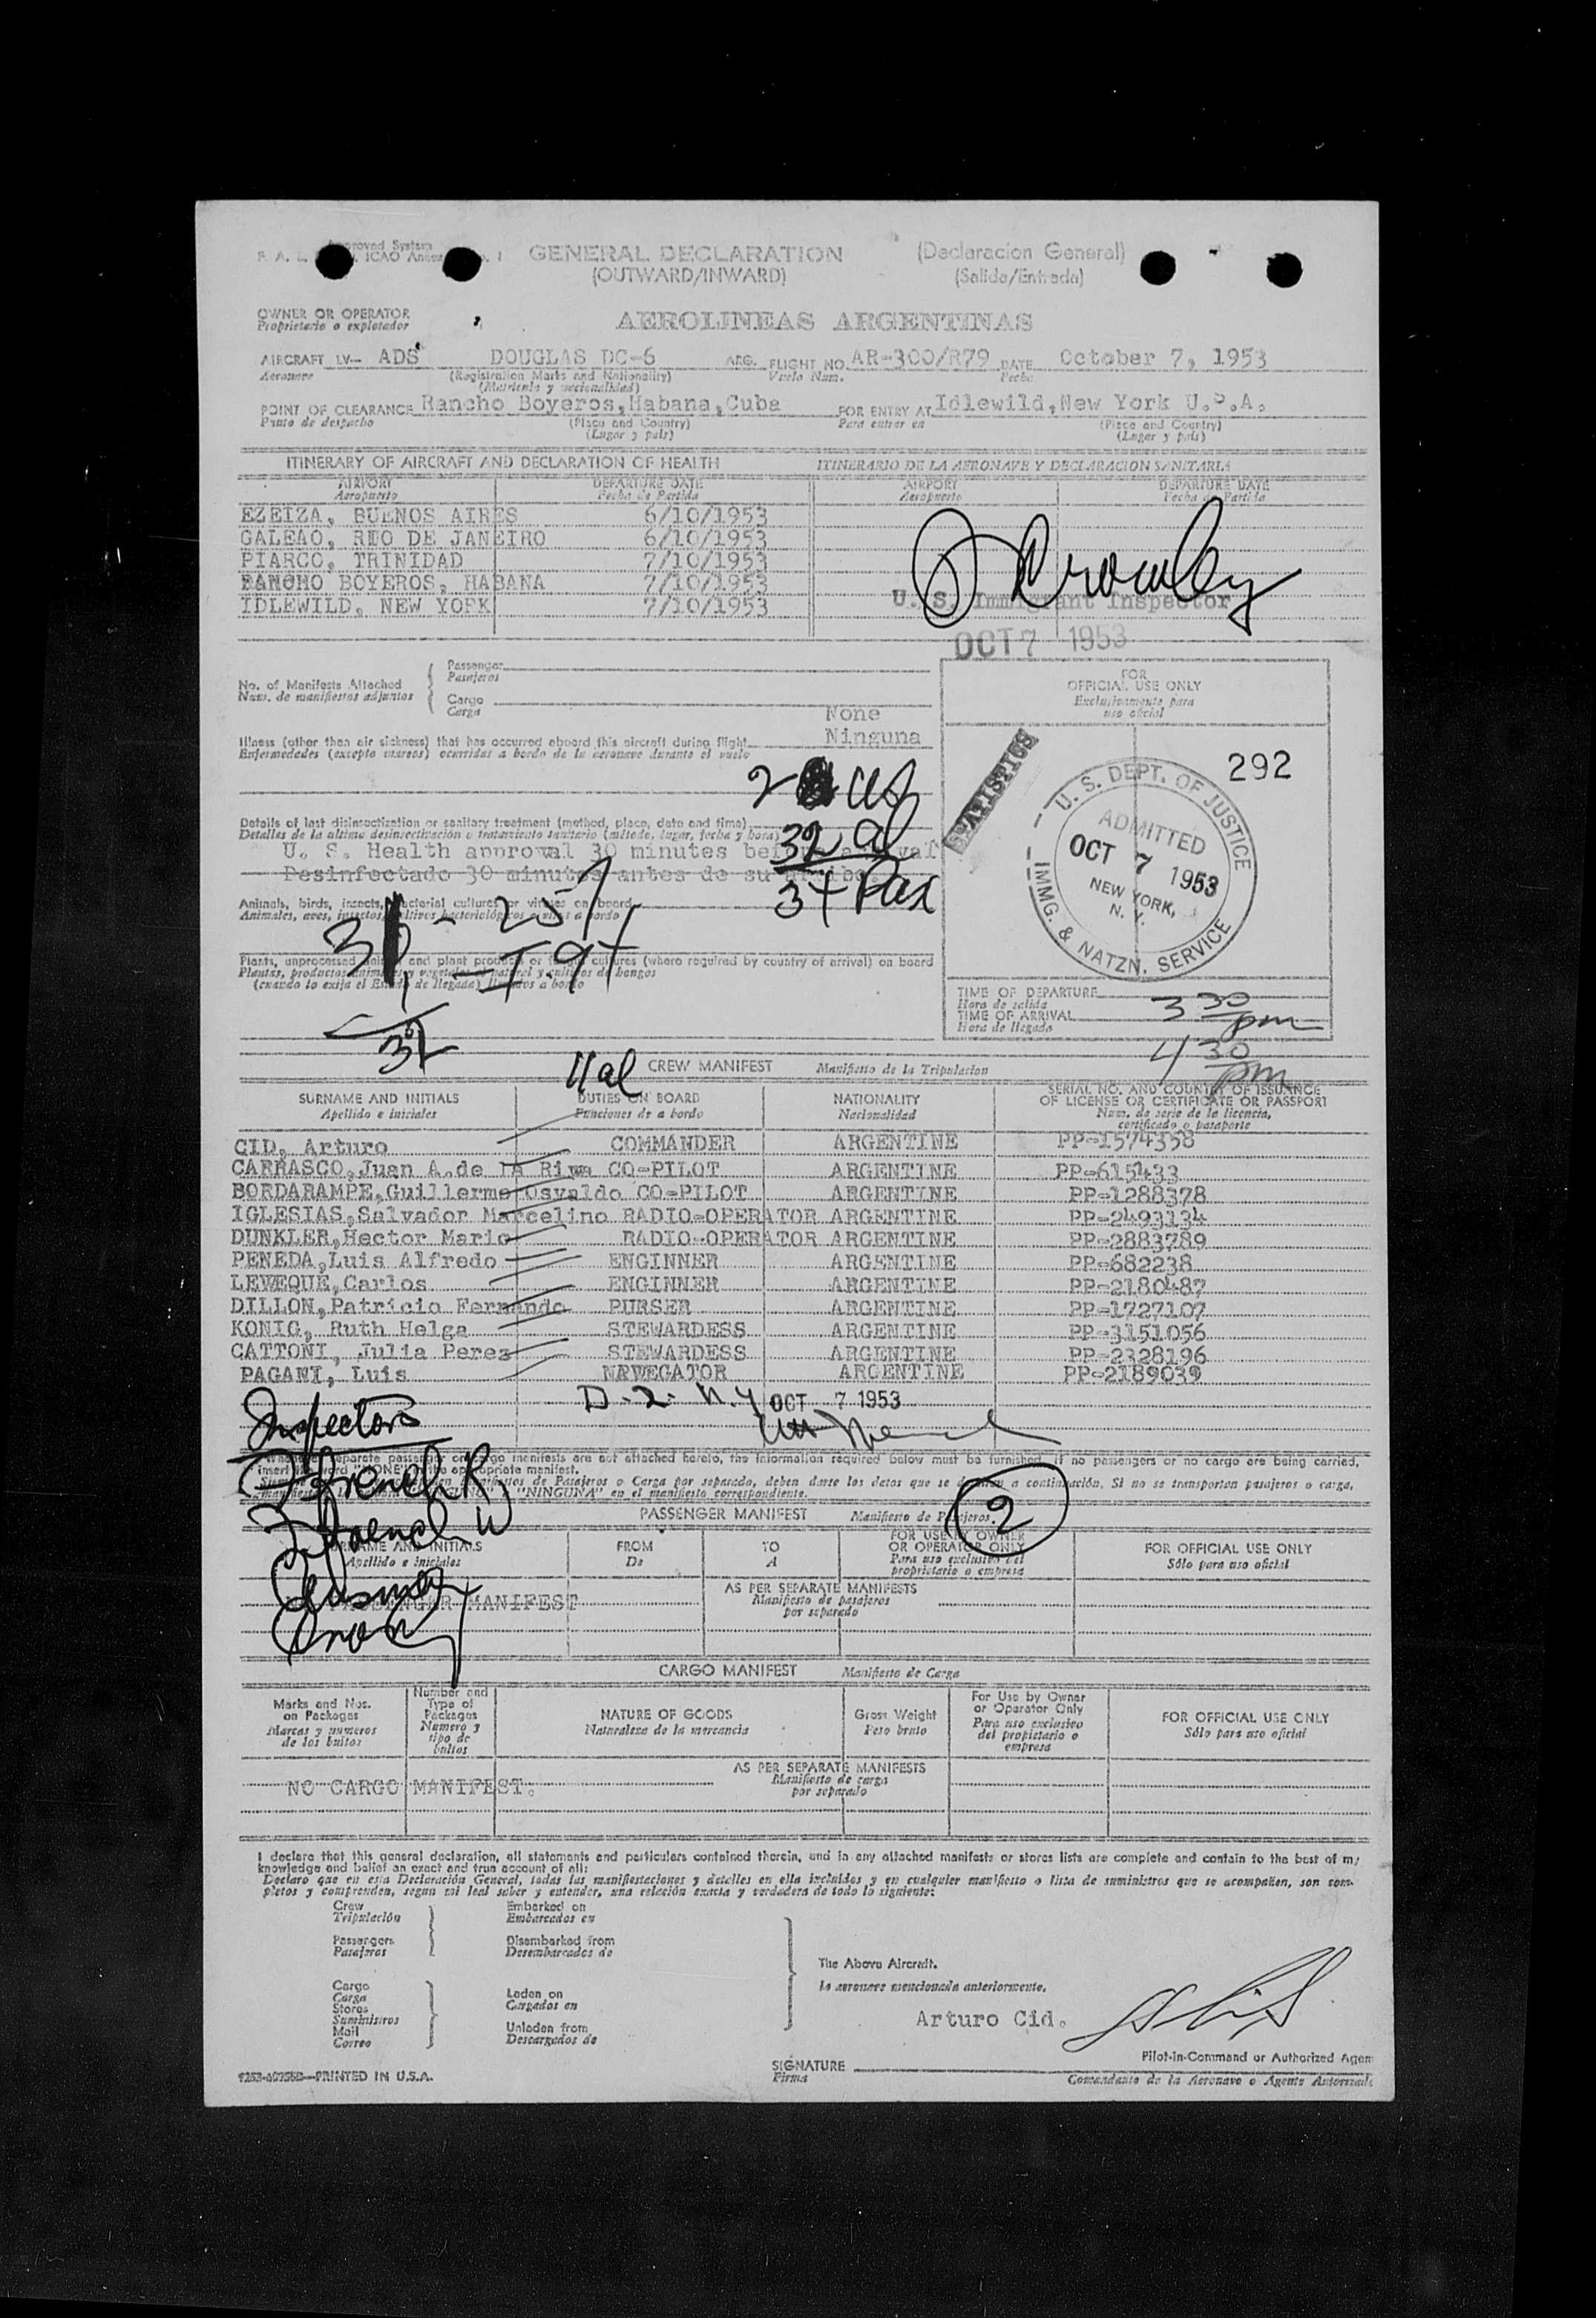 Approved System
GENERAL DECLARATION (Declaracion General)
(OUTWARD/INWARD) (Salida/Entrada)
OWNER OR OPERATOR AEROLINEAS ARGENTINAS
Propietario o explotador
AIRCRAFT LV— ADS DOUGLAS DC-6 ARG. FLIGHT NO. AR-300/R79 DATE October 7, 1953
Aeronave (Registration Marks and Nationality) Vuelo Num. Fecha
(Matricula y nacionalidad)
POINT OF CLEARANCE Rancho Boyeros,Habana,Cuba FOR ENTRY AT Idlewild,New York U.S.A.
Punto de despacho (Place and Country) Para entrar en (Place and Country)
(Lugar y pais) (Lugar y pais)
ITINERARY OF AIRCRAFT AND DECLARATION OF HEALTH ITINERARIO DE LA AERONAVE Y DECLARACION SANITARIA
AIRPORT DEPARTURE DATE AIRPORT DEPARTURE DATE
Aeropuerto Fecha de Partida Aeropuerto Fecha de Partida
EZEIZA, BUENOS AIRES 6/10/1953
GALEAO, RIO DE JANEIRO 6/10/1953
PIARCO, TRINIDAD 7/10/1953
RANCHO BOYEROS, HABANA 7/10/1953
IDLEWILD, NEW YORK 7/10/1953
Crowley
U. S. Immigrant Inspector
OCT 7 1953
No. of Manifests Attached
Num. de manifiestos adjuntos
Passenger
Pasajeros
Cargo
Carga
FOR
OFFICIAL USE ONLY
Exclusivamente para
uso oficial
None
Illness (other than air sickness) that has occurred aboard this aircraft during flight Ninguna
Enfermedades (excepto mareos) ocurridas a bordo de la aeronave durante el vuelo
STATISTICS
292
U. S. DEPT. OF JUSTICE
ADMITTED
OCT 7 1953
NEW YORK,
N. Y.
IMMG. & NATZN. SERVICE
Details of last disinsectization or sanitary treatment (method, place, date and time)
Detalles de la ultima desinsectización o tratamiento sanitario (método, lugar, fecha y hora)
32 al
34 Pax
U. S. Health approval 30 minutes before arrival
Desinfectado 30 minutos antes de su arribo.
Animals, birds, insects, bacterial cultures or viruses on board
Animales, aves, insectos, cultivos bacteriológicos o virus a bordo
Plants, unprocessed animal and plant products or fungi cultures (where required by country of arrival) on board
Plantas, productos animales y vegetales al natural y cultivos de hongos
(cuando lo exija el Estado de llegada) llevados a bordo
TIME OF DEPARTURE 3 30 pm
Hora de salida
TIME OF ARRIVAL 4 30 pm
Hora de llegada
11 al CREW MANIFEST Manifiesto de la Tripulacion
SURNAME AND INITIALS DUTIES ON BOARD NATIONALITY SERIAL NO. AND COUNTRY OF ISSUANCE
Apellido e iniciales Funciones de a bordo Nacionalidad OF LICENSE OR CERTIFICATE OR PASSPORT
Num. de serie de la licencia,
certificado o pasaporte
CID, Arturo COMMANDER ARGENTINE PP-1574358
CARRASCO,Juan A.de la Riva CO-PILOT ARGENTINE PP-615433
BORDARAMPE,Guillermo Osvaldo CO-PILOT ARGENTINE PP-1288378
IGLESIAS,Salvador Marcelino RADIO-OPERATOR ARGENTINE PP-2493134
DUNKLER,Hector Mario RADIO-OPERATOR ARGENTINE PP-2883789
PENEDA,Luis Alfredo ENGINNER ARGENTINE PP-682238
LEVEQUE,Carlos ENGINNER ARGENTINE PP-2180487
DILLON,Patricio Fernando PURSER ARGENTINE PP-1727107
KONIG, Ruth Helga STEWARDESS ARGENTINE PP-3151056
CATTONI, Julia Perez STEWARDESS ARGENTINE PP-2328196
PAGANI, Luis NAVEGATOR ARGENTINE PP-2189039
D-2- N.Y OCT 7 1953
Inspectors
French R
French W
Crowley
separate passenger or cargo manifests are not attached hereto, the information required below must be furnished. If no passengers or no cargo are being carried,
insert the word "NONE" in the appropriate manifest.
Manifiestos de Pasajeros o Carga por separado, deben darse los datos que se detallan a continuación. Si no se transportan pasajeros o carga,
"NINGUNA" en el manifiesto correspondiente.
2
PASSENGER MANIFEST Manifiesto de Pasajeros
SURNAME AND INITIALS FROM TO FOR USE BY OWNER FOR OFFICIAL USE ONLY
Apellido e iniciales De A OR OPERATOR ONLY Sólo para uso oficial
Para uso exclusivo del
proprietario o empresa
AS PER SEPARATE MANIFESTS
PASSENGER MANIFEST Manifiesto de pasajeros
por separado
CARGO MANIFEST Manifiesto de Carga
Marks and Nos. on Packages
Marcas y numeros de los bultos
Number and Type of Packages
Numero y tipo de bultos
NATURE OF GOODS
Naturaleza de la mercancia
Gross Weight
Peso bruto
For Use by Owner or Operator Only
Para uso exclusivo del propietario o empresa
FOR OFFICIAL USE ONLY
Sólo para uso oficial
AS PER SEPARATE MANIFESTS
NO CARGO MANIFEST. Manifiesto de carga
por separado
I declare that this general declaration, all statements and particulars contained therein, and in any attached manifests or stores lists are complete and contain to the best of my
knowledge and belief an exact and true account of all:
Declaro que en esta Declaración General, todas las manifestaciones y detalles en ella incluidos y en cualquier manifiesto o lista de suministros que se acompañen, son com-
pletos y comprenden, segun mi leal saber y entender, una relación exacta y verdadera de todo lo siguiente:
Crew Embarked on
Tripulación Embarcados en
Passengers Disembarked from
Pasajeros Desembarcados de
The Above Aircraft.
Cargo Laden on La aeronave mencionada anteriormente.
Carga Cargados en
Stores
Suministros
Mail Unladen from
Correo Descargados de
Arturo Cid.
Pilot-in-Command or Authorized Agen
SIGNATURE
Firma Comandante de la Aeronave o Agente Autorizado
PRINTED IN U.S.A.